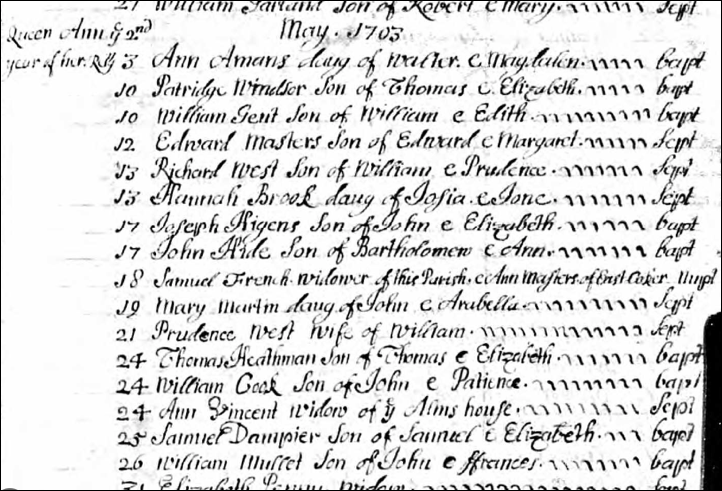 27 William Garland Son of Robert e Mary. Sept
Queen Ann ye 2nd
May. 1703
year of her. Rg 3 Ann Amans daug of Walter. e Magdalen. bapt
10 Patridge Windsor Son of Thomas e Elizabeth. bapt
10 William Gent Son of William e Edith. bapt
12 Edward Masters Son of Edward e Margaret. Sept
13 Richard West Son of William e Prudence. Sept
13 Hannah Brook daug of Josia. e Jone. Sept
17 Joseph Higens Son of John e Elizabeth. bapt
17 John Hide Son of Bartholomew e Ann. bapt
18 Samuel French widower of this Parish. e Ann Masters of East Coker. Nupt
19 Mary Martin daug of John e Arabella. Sept
21 Prudence West Wife of William. Sept
24 Thomas Heathman Son of Thomas e Elizabeth. bapt
24 William Cook Son of John e Patience. bapt
24 Ann Vincent widow of ye Alms house. Sept
25 Samuel Dampier Son of Samuel e Elizabeth. bapt
26 William Mullet Son of John e ffrances. bapt
31 Elizabeth Penny widow. Sept